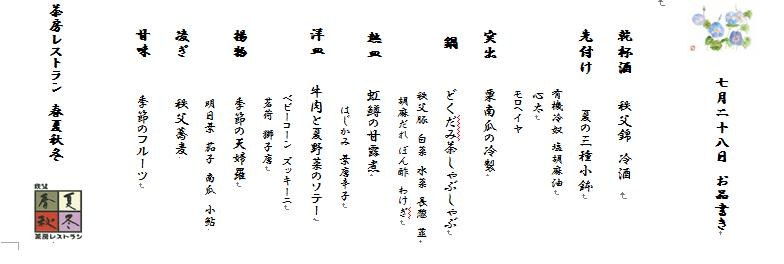 七月二十八日 お品書き
乾杯酒 秩父錦 冷酒
先付け 夏の三種小鉢
有機冷奴 塩胡麻油
心太
モロヘイヤ
突出 栗南瓜の冷製
鍋 どくだみ茶しゃぶしゃぶ
秩父豚 白菜 水菜 長葱 韮
胡麻だれ ぽん酢 わけぎ
蒸皿 虹鱒の甘露煮
はじかみ 葉唐辛子
洋皿 牛肉と夏野菜のソテー
ベビーコーン ズッキーニ
茗荷 獅子唐
揚物 季節の天婦羅
明日葉 茄子 南瓜 小鮎
凌ぎ 秩父蕎麦
甘味 季節のフルーツ
茶房レストラン 春夏秋冬
秩父
春夏
秋冬
茶房レストラン